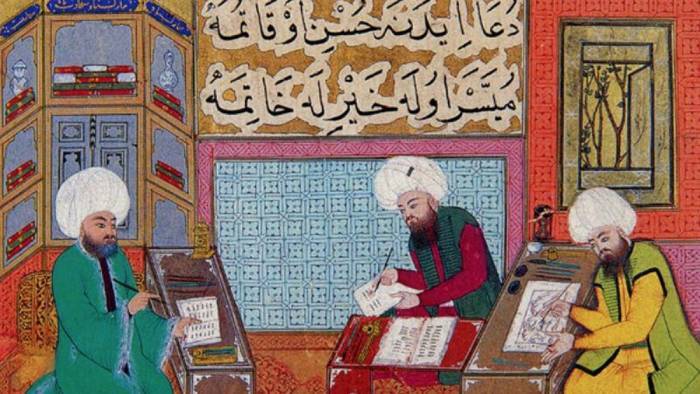 دُعَا اِيدَنَه حُسْنِ اَوْقَاتُمَه
مُيَسَّرْ اَوله خَيْرِلَه خَاتِمَه